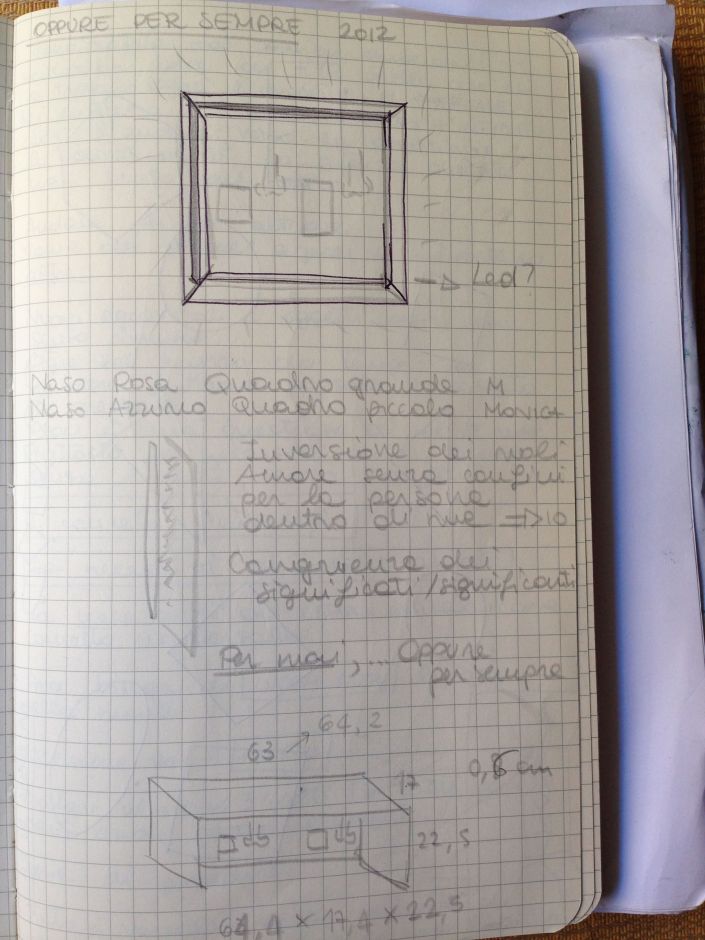 OPPURE PER SEMPRE 2012
→ Led?
Naso Rosa Quadro grande M
Naso Azzurro Quadro piccolo
Inversione dei ruoli
Amore senza confini
per la persona
dentro di me => io
Congruenza dei
significati/significanti
Per mari, ... Oppure
per sempre
63 → 64,2
17 0,6 cm
22,5
64,4 × 17,4 × 22,5